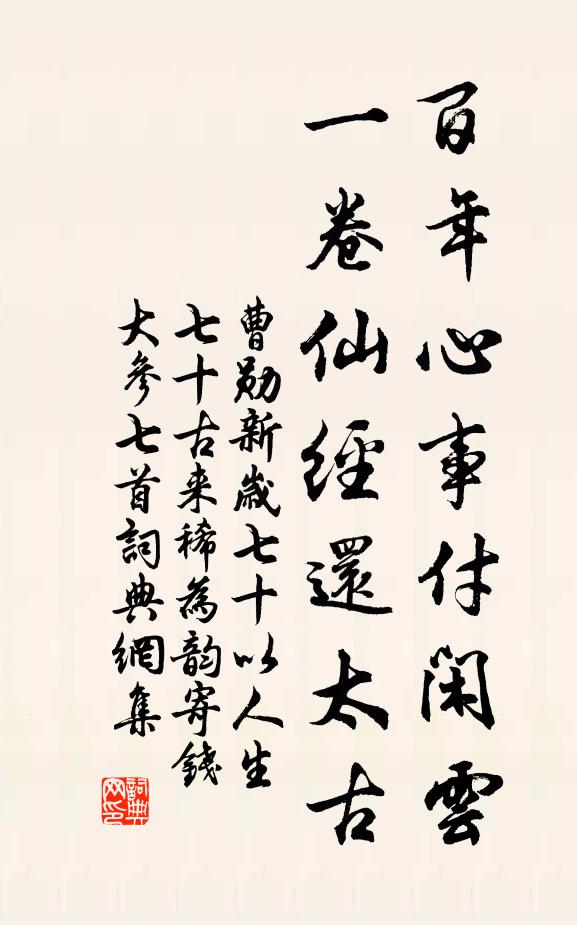 百年心事付閑雲
一卷仙經還太古
曹勛新歲七十以人生
七十古来稀為韵寄錢
大參七首詞典網集
詞典
网印